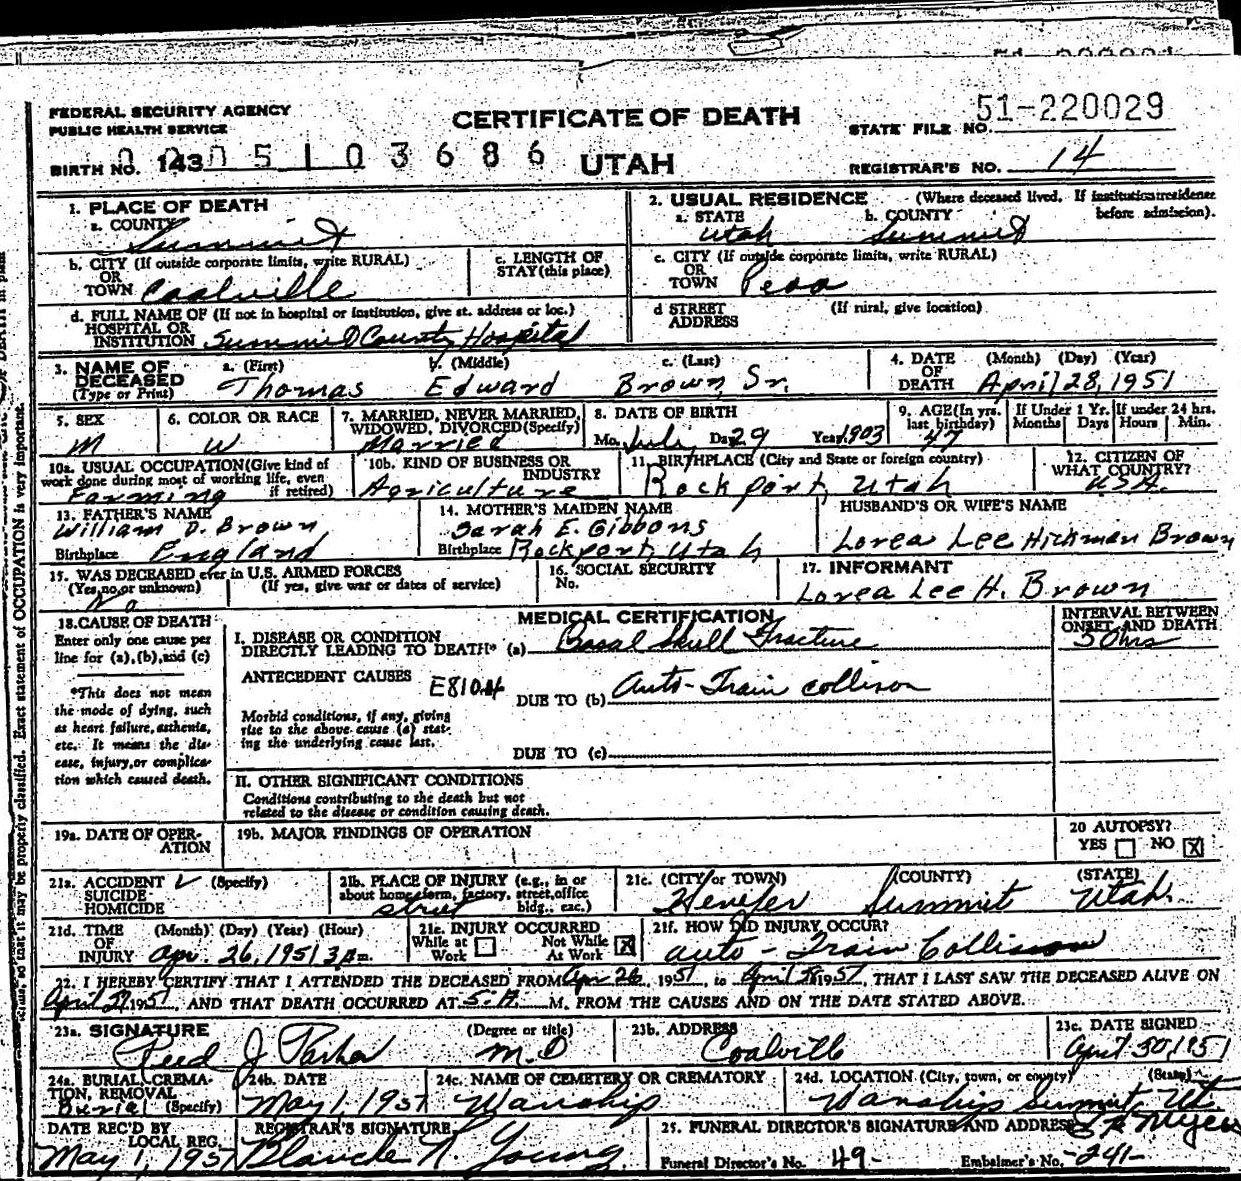 FEDERAL SECURITY AGENCY
PUBLIC HEALTH SERVICE
CERTIFICATE OF DEATH
STATE FILE NO. 51-220029
BIRTH NO. 143 0005103686
UTAH
REGISTRAR'S NO. 14
1. PLACE OF DEATH
a. COUNTY Summit
2. USUAL RESIDENCE (Where deceased lived. If institution:residence before admission).
a. STATE Utah b. COUNTY Summit
b. CITY (If outside corporate limits, write RURAL) OR TOWN Coalville
c. LENGTH OF STAY (this place)
c. CITY (If outside corporate limits, write RURAL) OR TOWN Peoa
d. FULL NAME OF (If not in hospital or institution, give st. address or loc.) HOSPITAL OR INSTITUTION Summit County Hospital
d STREET ADDRESS (If rural, give location)
3. NAME OF DECEASED (Type or Print)
a. (First) Thomas b. (Middle) Edward c. (Last) Brown, Sr.
4. DATE OF DEATH (Month) (Day) (Year) April 28, 1951
5. SEX M
6. COLOR OR RACE W
7. MARRIED, NEVER MARRIED, WIDOWED, DIVORCED (Specify) Married
8. DATE OF BIRTH Mo. July Day 29 Year 1903
9. AGE (In yrs. last birthday) 47
If Under 1 Yr. Months Days
If under 24 hrs. Hours Min.
10a. USUAL OCCUPATION (Give kind of work done during most of working life, even if retired) Farming
10b. KIND OF BUSINESS OR INDUSTRY Agriculture
11. BIRTHPLACE (City and State or foreign country) Rockport, Utah
12. CITIZEN OF WHAT COUNTRY? USA.
13. FATHER'S NAME William D. Brown
Birthplace England
14. MOTHER'S MAIDEN NAME Sarah E. Gibbons
Birthplace Rockport, Utah
HUSBAND'S OR WIFE'S NAME Lorea Lee Hickman Brown
15. WAS DECEASED ever in U.S. ARMED FORCES (Yes, no, or unknown) (If yes, give war or dates of service) No
16. SOCIAL SECURITY No.
17. INFORMANT Lorea Lee H. Brown
18. CAUSE OF DEATH
Enter only one cause per line for (a), (b), and (c)
*This does not mean the mode of dying, such as heart failure, asthenia, etc. It means the disease, injury, or complication which caused death.
MEDICAL CERTIFICATION
INTERVAL BETWEEN ONSET AND DEATH
I. DISEASE OR CONDITION DIRECTLY LEADING TO DEATH* (a) Basal Skull Fracture
50 hrs
ANTECEDENT CAUSES E810.4
DUE TO (b) Auto-Train collison
Morbid conditions, if any, giving rise to the above cause (a) stating the underlying cause last.
DUE TO (c)
II. OTHER SIGNIFICANT CONDITIONS
Conditions contributing to the death but not related to the disease or condition causing death.
19a. DATE OF OPERATION
19b. MAJOR FINDINGS OF OPERATION
20 AUTOPSY? YES NO X
21a. ACCIDENT ✓ (Specify)
SUICIDE
HOMICIDE
21b. PLACE OF INJURY (e.g., in or about home, farm, factory, street, office bldg., etc.) street
21c. (CITY or TOWN) (COUNTY) (STATE)
Henefer Summit Utah.
21d. TIME OF INJURY (Month) (Day) (Year) (Hour) Apr. 26, 1951 3 p.m.
21e. INJURY OCCURRED While at Work Not While At Work X
21f. HOW DID INJURY OCCUR? auto-Train Collison
22. I HEREBY CERTIFY THAT I ATTENDED THE DECEASED FROM Apr 26, 1951, to April 28 1951, THAT I LAST SAW THE DECEASED ALIVE ON
April 27 1951, AND THAT DEATH OCCURRED AT 5:A M. FROM THE CAUSES AND ON THE DATE STATED ABOVE.
23a. SIGNATURE (Degree or title)
Reed J Parker M.D
23b. ADDRESS Coalville
23c. DATE SIGNED April 30, 1951
24a. BURIAL, CREMATION, REMOVAL (Specify) Burial
24b. DATE May 1, 1951
24c. NAME OF CEMETERY OR CREMATORY Wanship
24d. LOCATION (City, town, or county) (State)
Wanship Summit Ut.
DATE REC'D BY LOCAL REG. May 1, 1951
REGISTRAR'S SIGNATURE Blanche N. Young
25. FUNERAL DIRECTOR'S SIGNATURE AND ADDRESS Myers
Funeral Director's No. 49- Embalmer's No. -241-
Exact statement of OCCUPATION is very important.
so that it may be properly classified.